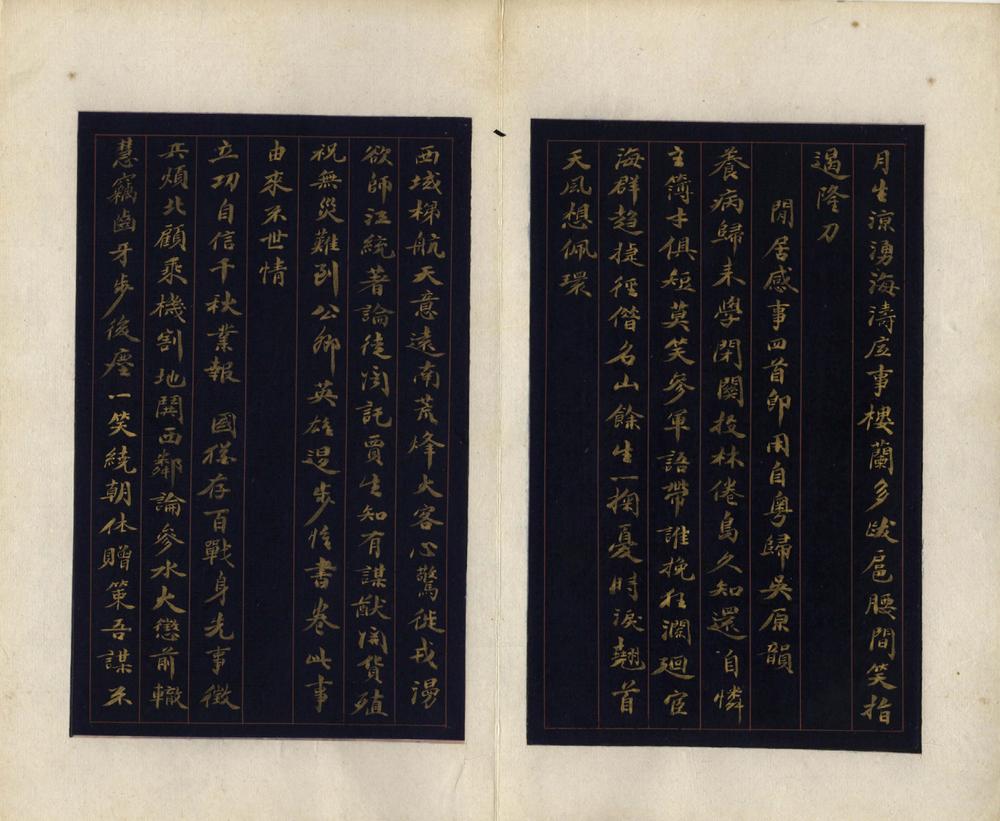 月生涼湧海濤應事樓蘭多跋扈腰間笑指
過隆刀
閒居感事四首即用自粵歸吳原韻
養病歸来學閉關投林倦鳥久知還自憐
主簿才俱短莫笑參軍語帶誰挽狂瀾廻宦
海群趨捷徑僭名山餘生一掬憂時淚翹首
天風想佩環
西域梯航天意遠南荒烽火客心驚徙戎湯
欲師江統著論徒聞託賈生知有謀猷閒貨殖
祝無災難到公卿英雄退步恃書卷此事
由來不世情
立功自信千秋業報 國猶存百戰身先事徵
兵煩北顧乘機割地鬩西鄰論參水火懲前轍
慧竊齒牙步後塵一笑繞朝休贈策吾謀不